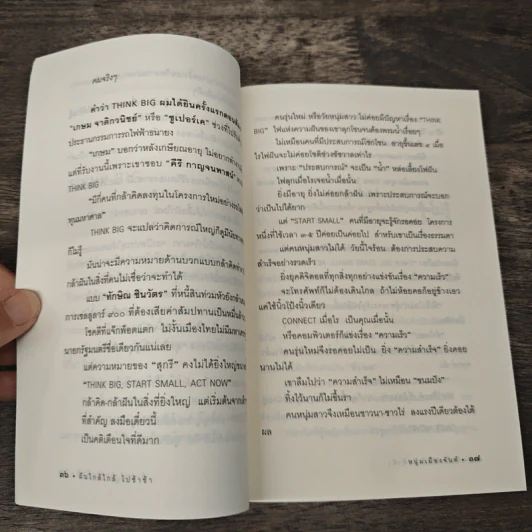 คมจริงๆ
คำว่า THINK BIG ผมได้ยินครั้งแรกตอนที่
"เกษม จาติกวณิชย์" หรือ "ซูเปอร์เค"
ประธานกรรมการรถไฟฟ้าธนายง
"เกษม" บอกว่าหลังเกษียณอายุ ไม่อยาก
แต่ที่รับงานนี้เพราะเขาชอบ "คีรี กาญจนพาสน์"
THINK BIG
"มีกี่คนที่กล้าคิดลงทุนในโครงการใหม่อย่าง
ทุนมหาศาล"
THINK BIG จะแปลว่าคิดการณ์ใหญ่ก็ดูมี
ก็ไม่รู้
มันน่าจะมีความหมายด้านบวกแบบกล้าคิด
กล้าฝันในสิ่งที่คนไม่เชื่อว่าจะทำได้
แบบ "ทักษิณ ชินวัตร" ที่หนี้สินท่วมหัวยังกล้า
การเซลลูลาร์ ๙๐๐ ที่ต้องเสียค่าสัมปทานเป็นหมื่นล้าน
โชคดีที่แจ๊กพ็อตแตก ไม่งั้นเมืองไทยไม่มี
นายกรัฐมนตรีชื่อเดียวกันแน่เลย
แต่ความหมายของ "สุกรี" คงไม่ได้ยิ่งใหญ่
"THINK BIG, START SMALL, ACT NOW"
กล้าคิด-กล้าฝันในสิ่งที่ยิ่งใหญ่ แต่เริ่มต้นจาก
ที่สำคัญ ลงมือเดี๋ยวนี้
เป็นคติเตือนใจที่ดีมาก
๓๖ • ฝันใกล้ใกล้ ไปช้าช้า
คนรุ่นใหม่ หรือวัยหนุ่มสาว ไม่ค่อยมีปัญหาเรื่อง "THINK
BIG" ไฟแห่งความฝันของเขาลุกโชนจนต้องพรมน้ำเรื่อยๆ
ไม่เหมือนคนที่มีประสบการณ์โชกโชน อายุขึ้นเลข ๔ เมื่อ
ไรไฟฝันจะไม่ค่อยโชติช่วงชัชวาลเท่าไร
เพราะ "ประสบการณ์" จะเป็น "น้ำ" หล่อเลี้ยงไฟฝัน
ไฟลุกเมื่อไรเจอน้ำเมื่อนั้น
ยิ่งมีอายุ ยิ่งไม่ค่อยกล้าฝัน เพราะประสบการณ์จะบอก
ว่าเป็นไปได้ยาก
แต่ "START SMALL" คนที่มีอายุจะรู้จักรอคอย โครงการ
หนึ่งที่ใช้เวลา ๓-๕ ปีค่อยเป็นค่อยไป สำหรับเขาเป็นเรื่องธรรมดา
แต่คนหนุ่มสาวไม่ได้ วัยนี้ใจร้อน ต้องการประสบความ
สำเร็จอย่างรวดเร็ว
ยิ่งยุคดิจิตอลที่ทุกสิ่งทุกอย่างแข่งขันเรื่อง "ความเร็ว"
จะโทรศัพท์ก็ไม่ต้องเดินไกล ถ้าไม่ห้อยคอก็อยู่ข้างเอว
แค่ใช้นิ้วโป้งนิ้วเดียว
CONNECT เมื่อไร เป็นคุณเมื่อนั้น
หรือคอมพิวเตอร์ก็แข่งเรื่อง "ความเร็ว"
คนรุ่นใหม่จึงรอคอยไม่เป็น ยิ่ง "ความสำเร็จ" ยิ่งคอย
นานไม่ได้
เขาลืมไปว่า "ความสำเร็จ" ไม่เหมือน "ขนมปัง"
ทิ้งไว้นานก็ไม่ขึ้นรา
คนหนุ่มสาวจึงเหมือนชาวนา-ชาวไร่ ลงแรงปีเดียวต้องได้
ผล
หนุ่มเมืองจันท์ • ๓๗